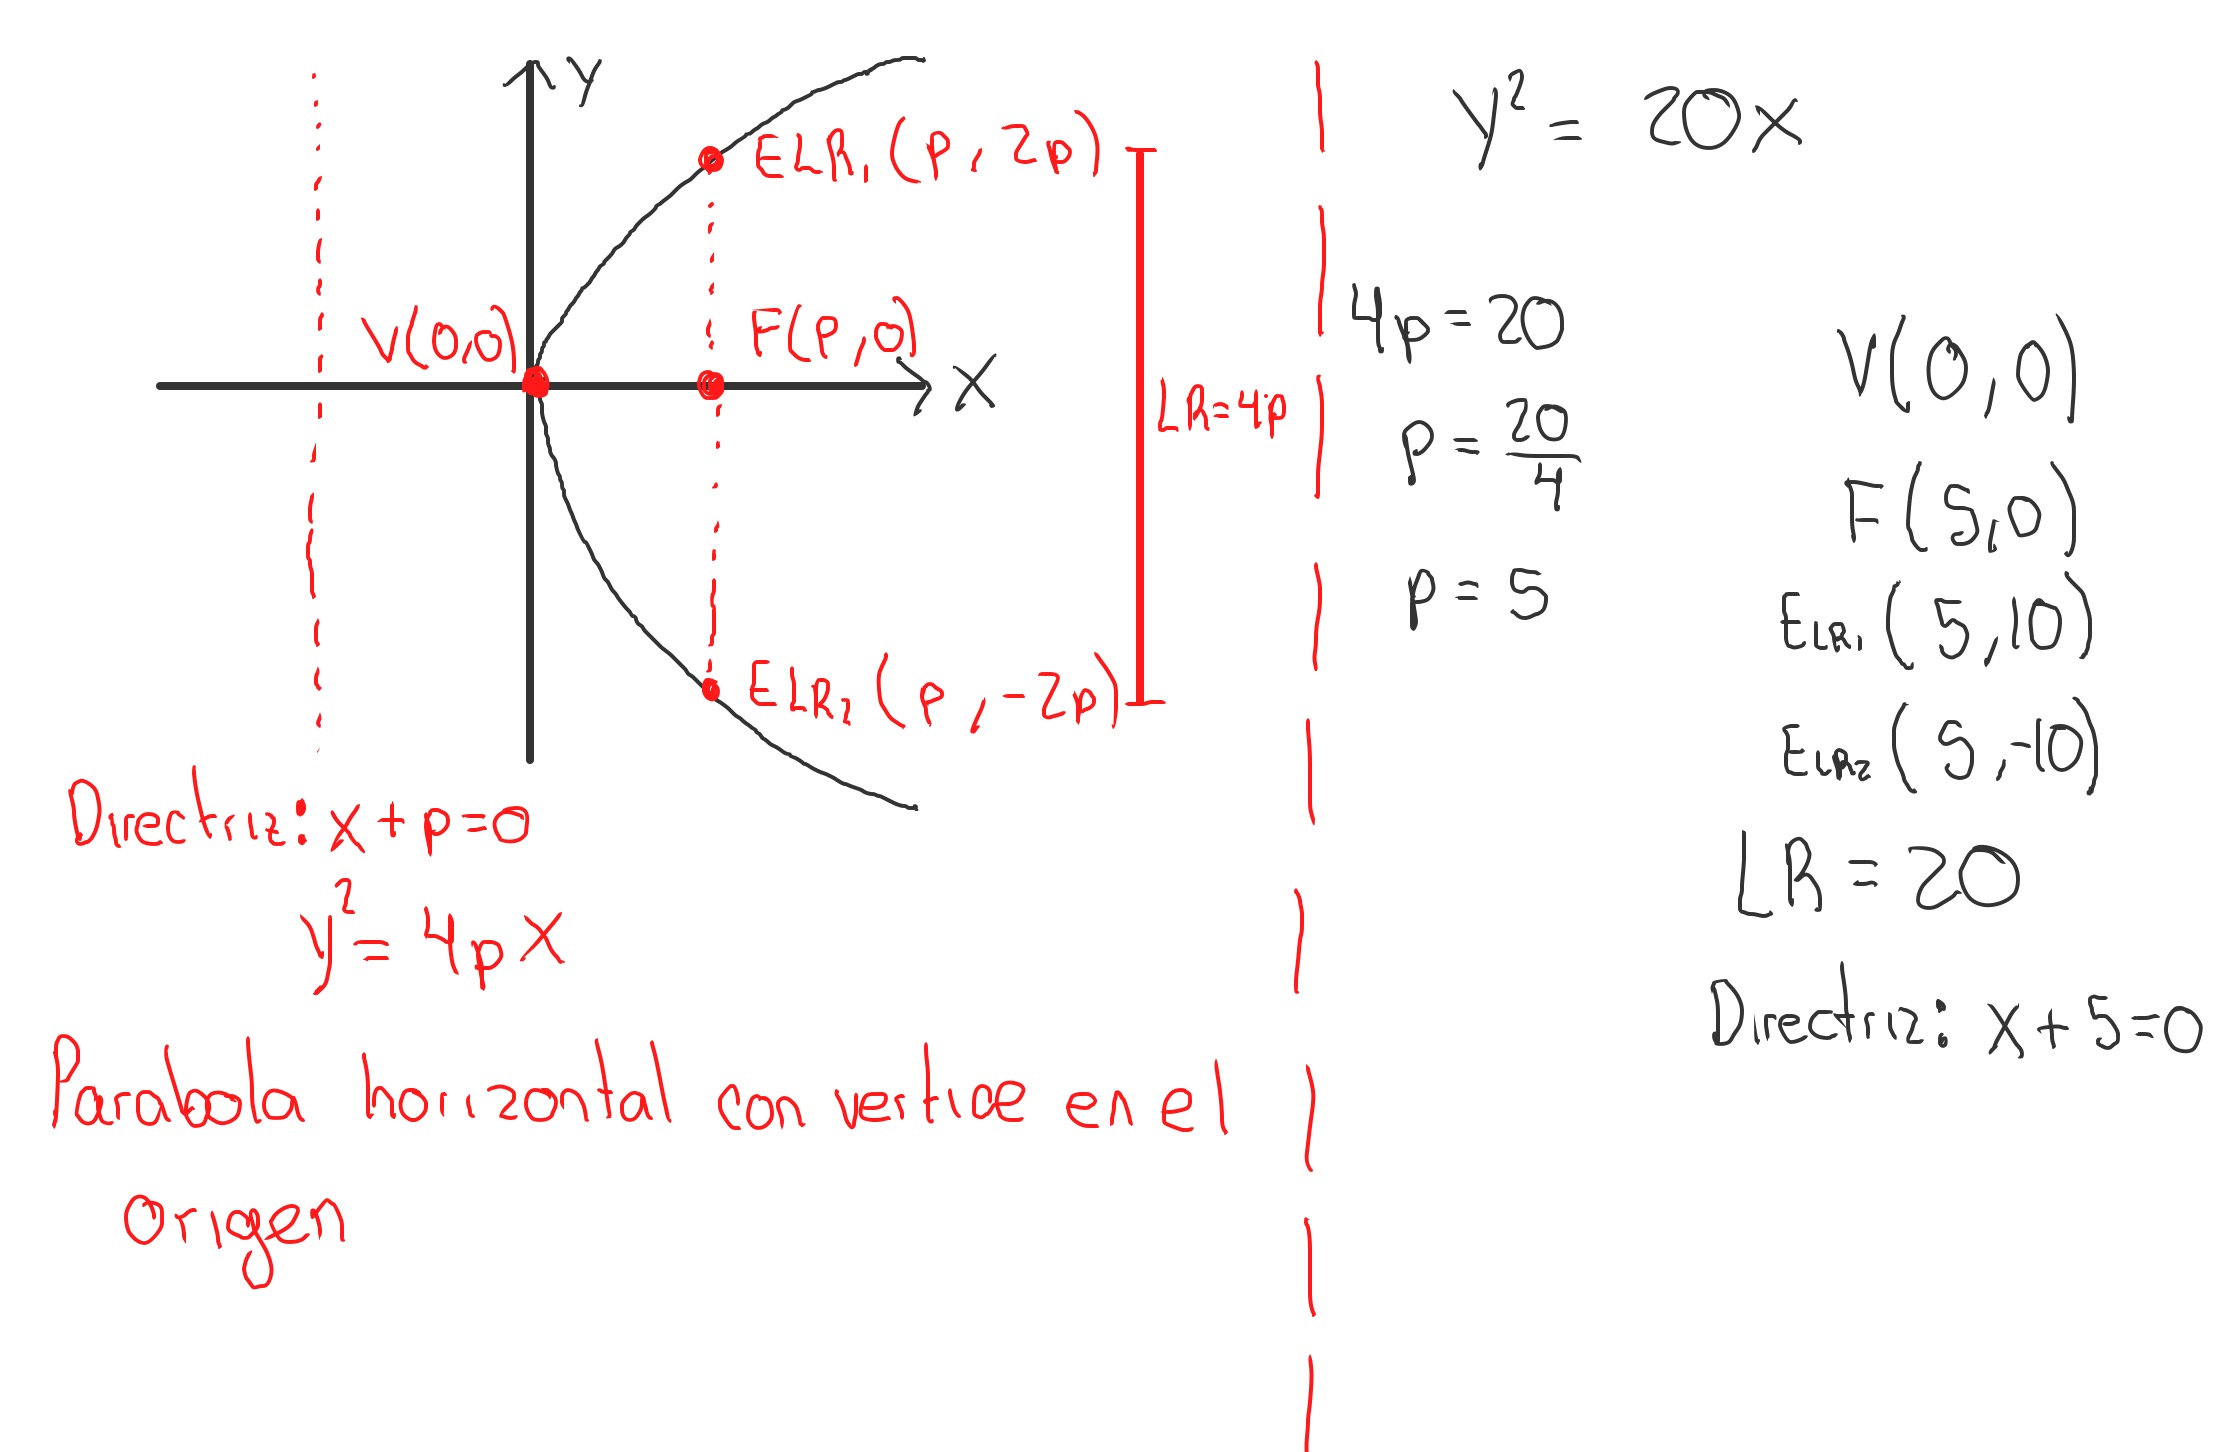 Y
ELR₁ (p, 2p)
V(0,0)
F(P,0)
X
LR=4p
ELR₂ (p, -2p)
Directriz: x+p=0
y²= 4px
Parabola horizontal con vertice en el
origen
y² = 20x
4p=20
p = 20/4
p = 5
V(0,0)
F(5,0)
ELR₁ (5,10)
ELR₂ (5,-10)
LR = 20
Directriz: x+5=0